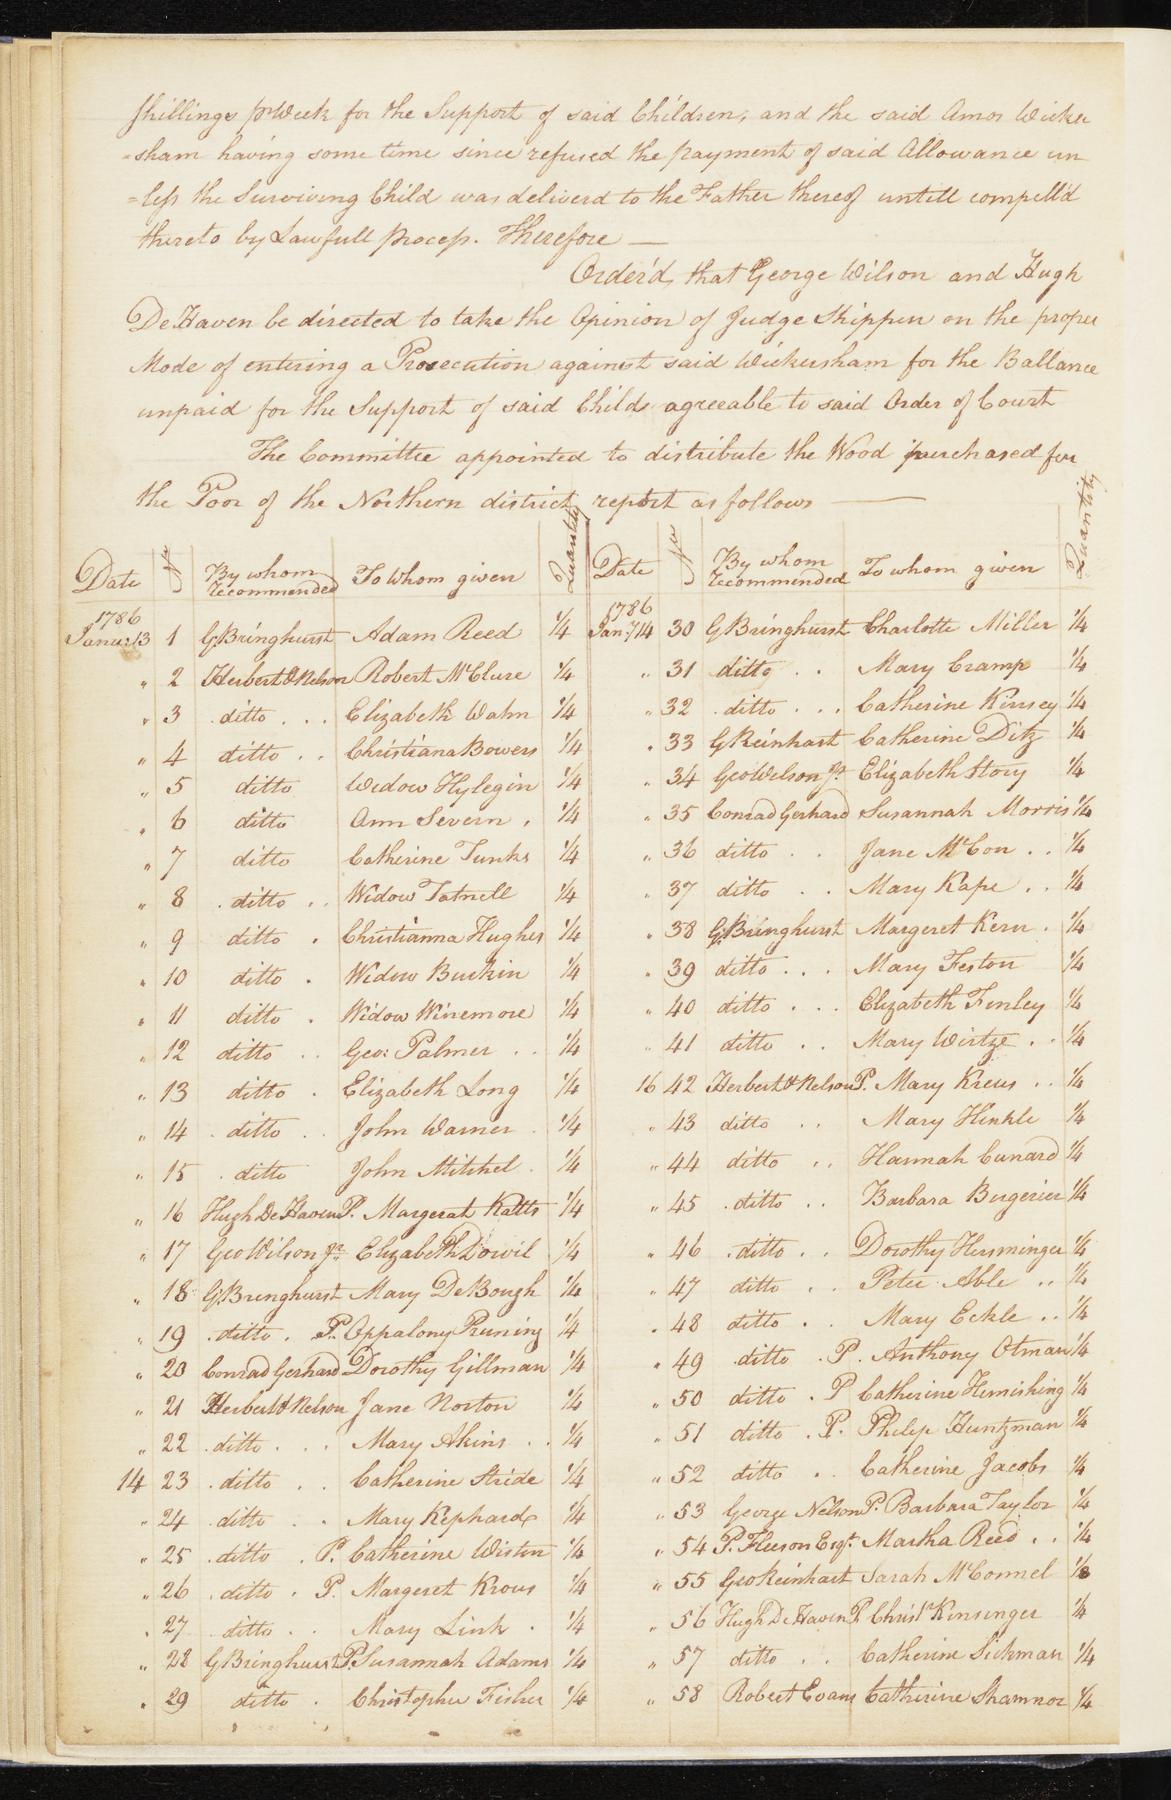 shillings pr Week for the Support of said Children, and the said Amos Wicker
=sham having some time since refused the payment of said Allowance un
=less the Surviving Child was deliverd to the Father thereof untill compell'd
thereto by Lawfull process. Therefore —
Order'd, that George Wilson and Hugh
De Haven be directed to take the Opinion of Judge Shippen on the proper
Mode of entering a Prosecution against said Wickersham for the Ballance
unpaid for the Support of said Child agreeable to said Order of Court
The Committee appointed to distribute the Wood purchased for
the Poor of the Northern district, report as follows —
Date No By whom recommended To whom given Quantity
1786
Janu: 13 1 G Bringhurst Adam Reed 1/4
" 2 Herbert & Nelson Robert McClure 1/4
" 3 ditto . . . Elizabeth Wahn 1/4
" 4 ditto . . Christiana Bowers 1/4
" 5 ditto Widow Hylegin 1/4
" 6 ditto Ann Severn . 1/4
" 7 ditto Catherine Tunks 1/4
" 8 . ditto . . Widow Tatnell 1/4
" 9 ditto . Christianna Hughes 1/4
" 10 ditto . Widow Burkin 1/4
" 11 ditto . Widow Winemore 1/4
" 12 ditto . . Geo: Palmer . . 1/4
" 13 ditto . Elizabeth Long 1/4
" 14 . ditto . . John Warner . 1/4
" 15 . ditto John Mitchel . 1/4
" 16 Hugh De Haven P. Margerat Katts 1/4
" 17 Geo Wilson Jr. Elizabeth Dowil 1/4
" 18 G Bringhurst Mary DeBough 1/4
" 19 . ditto . P. Oppalony Pruning 1/4
" 20 Conrad Gerhard Dorothy Gillman 1/4
" 21 Herbert & Nelson Jane Norton 1/4
" 22 . ditto . . . Mary Akins . . 1/4
14 23 . ditto . . Catherine Stride 1/4
" 24 . ditto . . Mary Kephard 1/4
" 25 . ditto . P. Catherine Wistin 1/4
" 26 . ditto . P. Margeret Krous 1/4
" 27 . ditto . . Mary Link . 1/4
" 28 G Bringhurst P. Susannah Adams 1/4
" 29 ditto . Christopher Fisher 1/4
Date No By whom recommended To whom given Quantity
1786
Jany 14 30 G Bringhurst Charlotte Miller 1/4
" 31 ditto . . Mary Cramp 1/4
" 32 . ditto . . . Catherine Kinsey 1/4
" 33 G Reinhart Catherine Ditz 1/4
" 34 Geo Wilson Jr. Elizabeth Story 1/4
" 35 Conrad Gerhard Susannah Morris 1/4
" 36 ditto . . Jane McCon . . 1/4
" 37 ditto . . Mary Kape . . 1/4
" 38 G. Bringhurst Margeret Kern . 1/4
" 39 ditto . . . Mary Feston 1/4
" 40 ditto . . . Elizabeth Finley 1/4
" 41 ditto . . Mary Wirtze . . 1/4
16 42 Herbert & Nelson P. Mary Kreus . . 1/4
" 43 ditto . . Mary Hinkle 1/4
" 44 ditto . . Hannah Cunard 1/4
" 45 . ditto . . Barbara Bergerier 1/4
" 46 . ditto . . Dorothy Herminger 1/4
" 47 ditto . . Peter Able . . 1/4
" 48 ditto . . Mary Eckle . . 1/4
" 49 ditto . P. Anthony Otman 1/4
" 50 ditto . P Catherine Himishing 1/4
" 51 ditto . P. Philip Huntzman 1/4
" 52 ditto . . Catherine Jacobs 1/4
" 53 George Nelson P. Barbara Taylor 1/4
" 54 P. Fleeson Esqr. Martha Reed . . 1/4
" 55 Geo Reinhart Sarah McConnel 1/8
" 56 Hugh De Haven P. Christr Kinsinger 1/4
" 57 ditto . . Catherine Sickman 1/4
" 58 Robert Evans Catherine Shamnoe 1/4